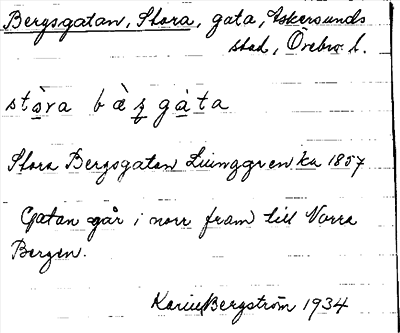 Bergsgatan, Stora, gata, Askersunds
stad, Örebro l.
stòra bæ̀rgàta
Stora Bergsgatan Ljunggren ka 1857
Gatan går i norr fram till Norra
Bergen.
Karin Bergström 1934